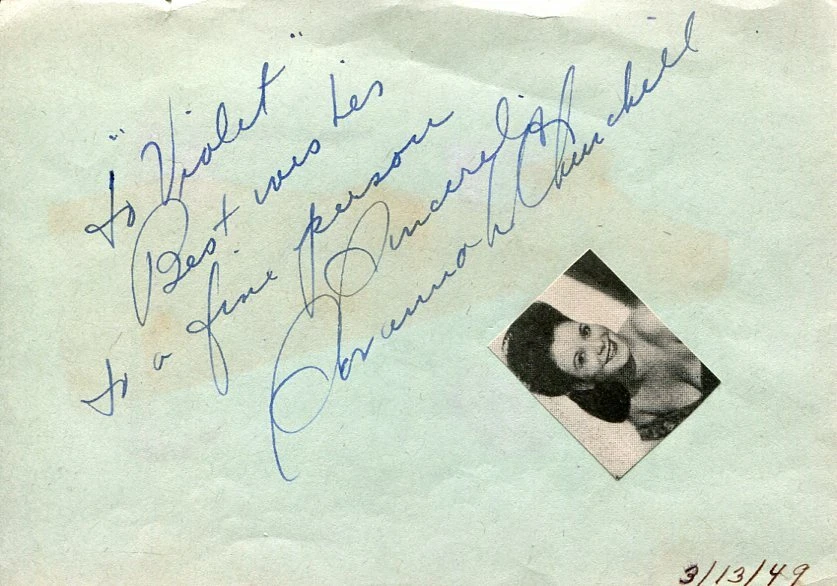 "To Violet"
Best wishes
to a fine person
Sincerely
Savannah Churchill
3/13/49